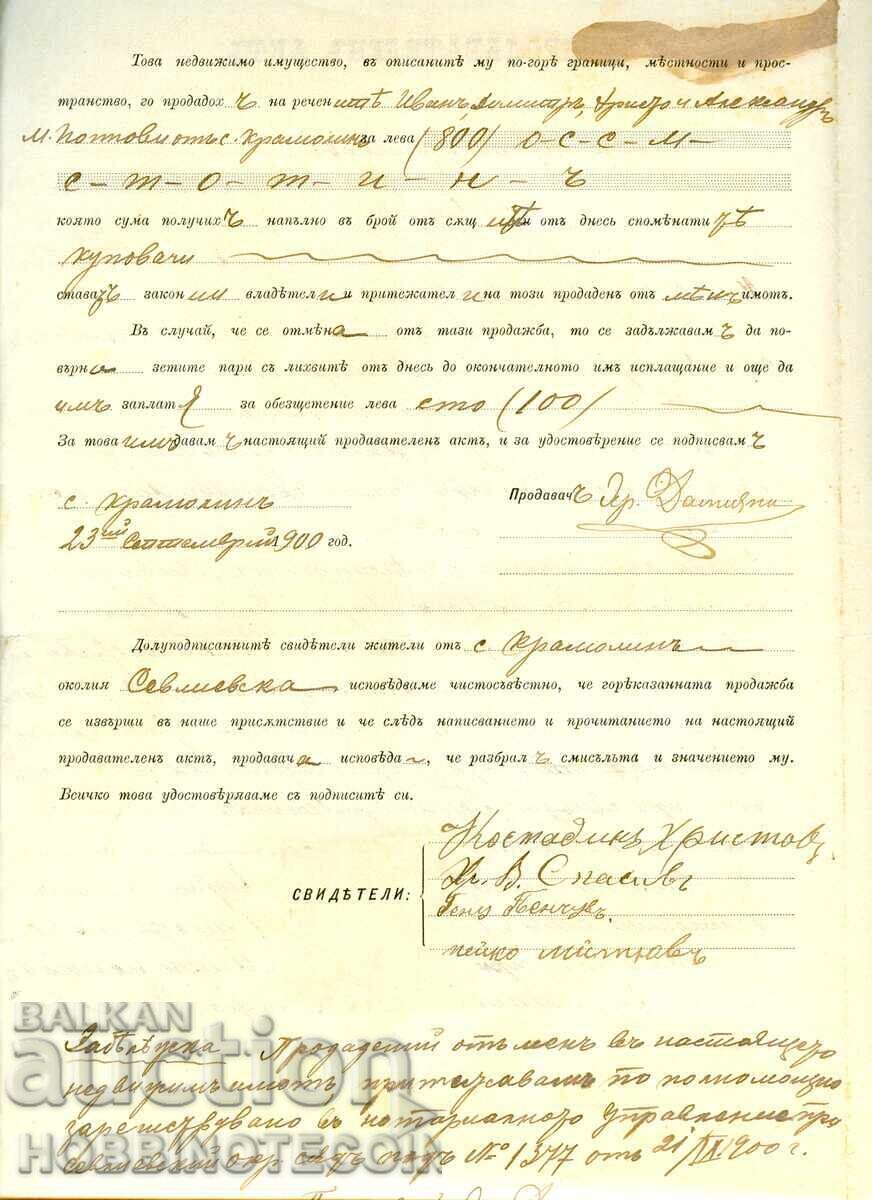 Това недвижимо имущество, въ описанитѣ му по-горѣ граници, мѣстности и прос-
транство, го продадохъ на реченитѣ Иванъ, Димитръ, Христо и Александръ
М. Поппови отъ с. Крамолинъ за лева (800) о-с-с-м-
с-т-о-т-и-н-ъ
която сума получихъ напълно въ брой отъ сѫщитѣ отъ днесь споменатитѣ
купувачи
ставатъ законни владѣтели и притежатели на този продаденъ отъ мѣнъ имотъ.
Въ случай, че се отмѣна отъ тази продажба, то се задължавамъ да по-
върна зетите пари съ лихвитѣ отъ днесь до окончателното имъ исплащание и още да
имъ заплатя за обезщетение лева сто (100)
За това имъ давамъ настоящий продавателенъ актъ, и за удостовѣрение се подписвамъ
с. Крамолинъ
Продавачъ Хр.
23ий Септемврий 1900 год.
Долуподписаннитѣ свидѣтели жители отъ с. Крамолинъ
околия Севлиевска исповѣдваме чистосъвѣстно, че горѣказанната продажба
се извърши въ наше присѫтствие и че слѣдъ написванието и прочитанието на настоящий
продавателенъ актъ, продавача исповѣда, че разбралъ смисълъта и значението му.
Всичко това удостовѣряваме съ подписитѣ си.
Костадинъ Христовъ
Хр. В. Спасовъ
СВИДѢТЕЛИ:
Пенчувъ.
пейко митювъ
Забѣлѣжка Продадений отъ менъ въ настоящето
недвижимъ имотъ, притежавамъ по полномощно
зарегиструвано въ нотариалното управление при
Севлиевский окр. съдъ подъ № 1377 отъ 21/IX 1900 г.
BALKAN
auction
HOBBNOTECOK